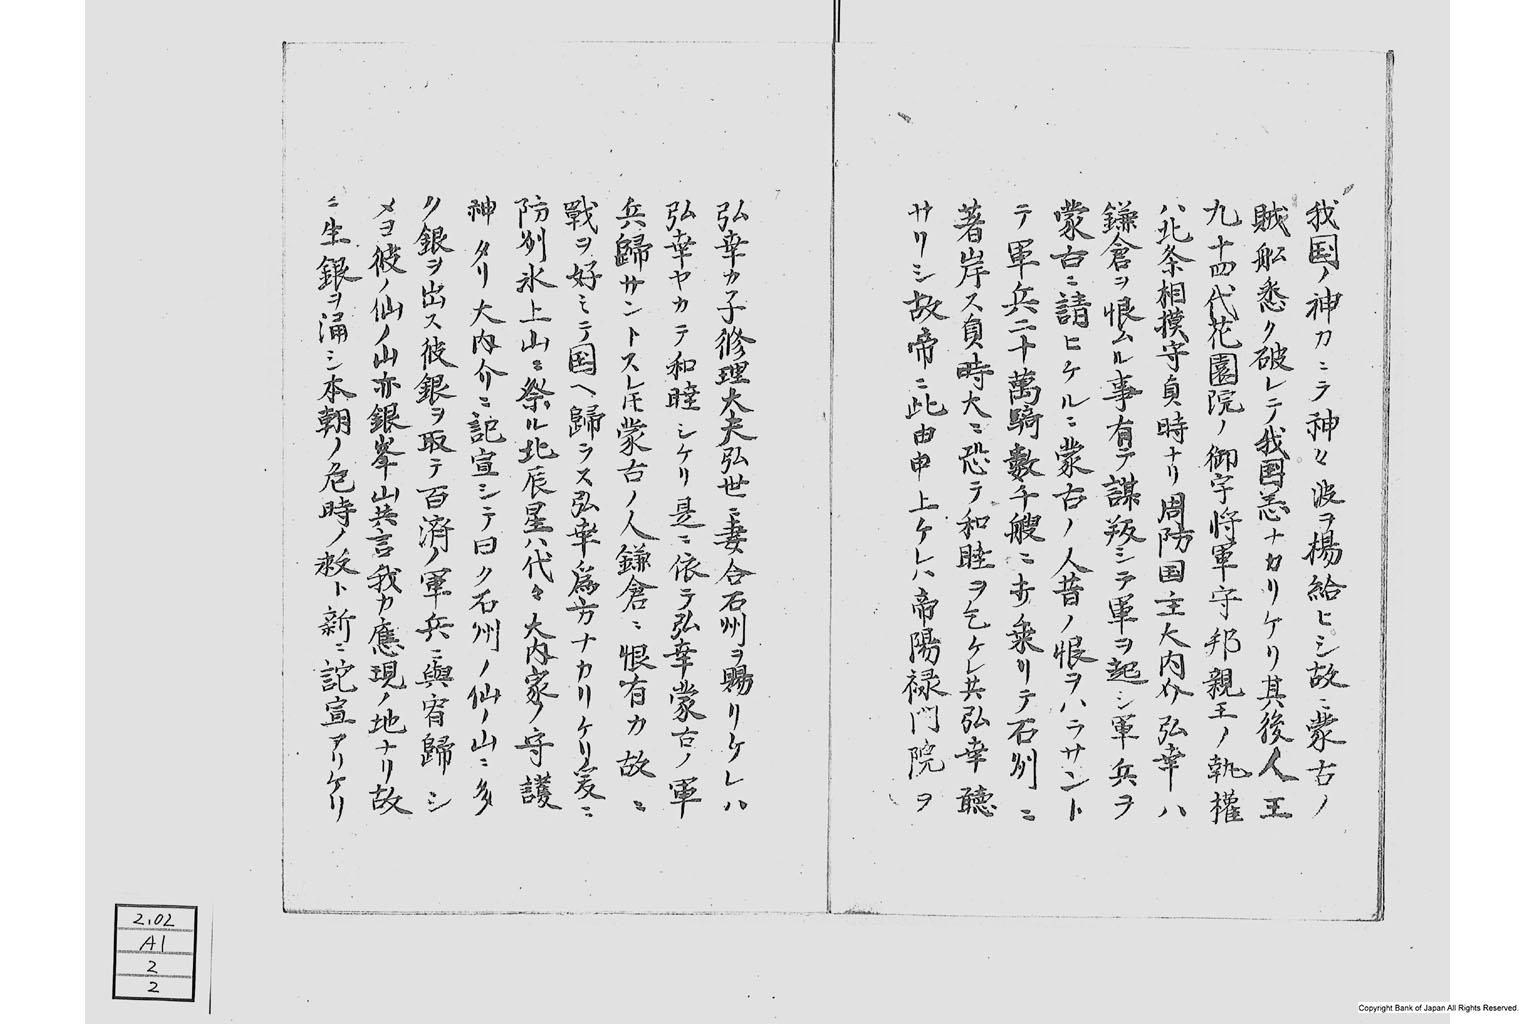 我国ノ神力ニテ神々波ヲ揚給ヒシ故ニ蒙古ノ
賊舩悉ク破レテ我国恙ナカリケリ其後人王
九十四代花園院ノ御宇将軍守邦親王ノ執權
ハ北条相摸守貞時ナリ周防国主大内介弘幸ハ
鎌倉ヲ恨ムル事有テ謀叛シテ軍ヲ起シ軍兵ヲ
蒙古ニ請ヒケルニ蒙古ノ人昔ノ恨ヲハラサント
テ軍兵二十萬騎數千艘ニ取乗リテ石州ニ
着岸ス貞時大ニ恐テ和睦ヲ乞ケレ共弘幸聽
サリシ故帝ニ此由申上ケレハ帝陽禄門院ヲ
弘幸カ子修理大夫弘世ニ妻合石州ヲ賜リケレハ
弘幸ヤカテ和睦シケリ是ニ依テ弘幸蒙古ノ軍
兵歸サントスレ𪜈蒙古ノ人鎌倉ニ恨有カ故ニ
戰ヲ好ミテ国ヘ歸ラス弘幸爲方ナカリケリ爰ニ
防州氷上山ニ祭ル北辰星ハ代々大内家ノ守護
神タリ大内介ニ詫宣シテ曰ク石州ノ仙ノ山ニ多
ク銀ヲ出ス彼銀ヲ取テ百済ノ軍兵ニ與宥歸シ
メヨ彼ノ仙ノ山亦銀峯山共言我カ應現ノ地ナリ故
ニ生銀ヲ涌シ本朝ノ危時ノ救ト新ニ詫宣アリケリ
2.02
A1
2
2
Copyright Bank of Japan All Rights Reserved.